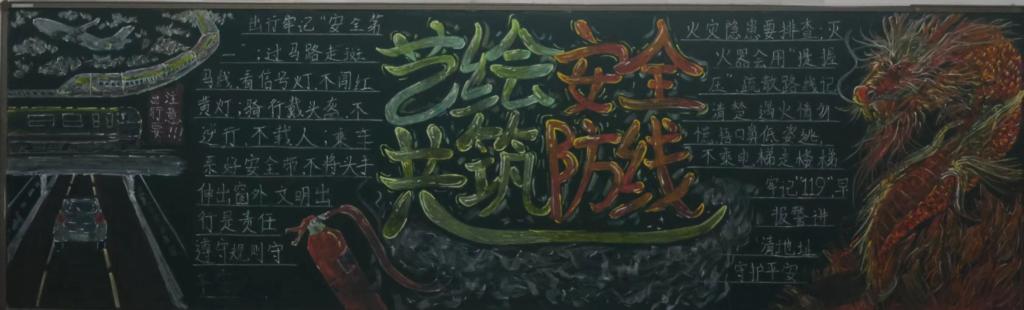 艺绘安全
共筑防线
出行牢记“安全第
一”;过马路走斑
马线,看信号灯,不闯红
黄灯;骑行戴头盔,不
逆行,不载人;乘车
系好安全带,不将头手
伸出窗外 文明出
行是责任
遵守规则守
火灾隐患要排查,灭
火器会用“提 拔
压”疏散路线记
清楚 遇火情勿
捂口鼻低姿逃
不乘电梯走楼梯
牢记“119”早
报警 讲
清地址
守护平安